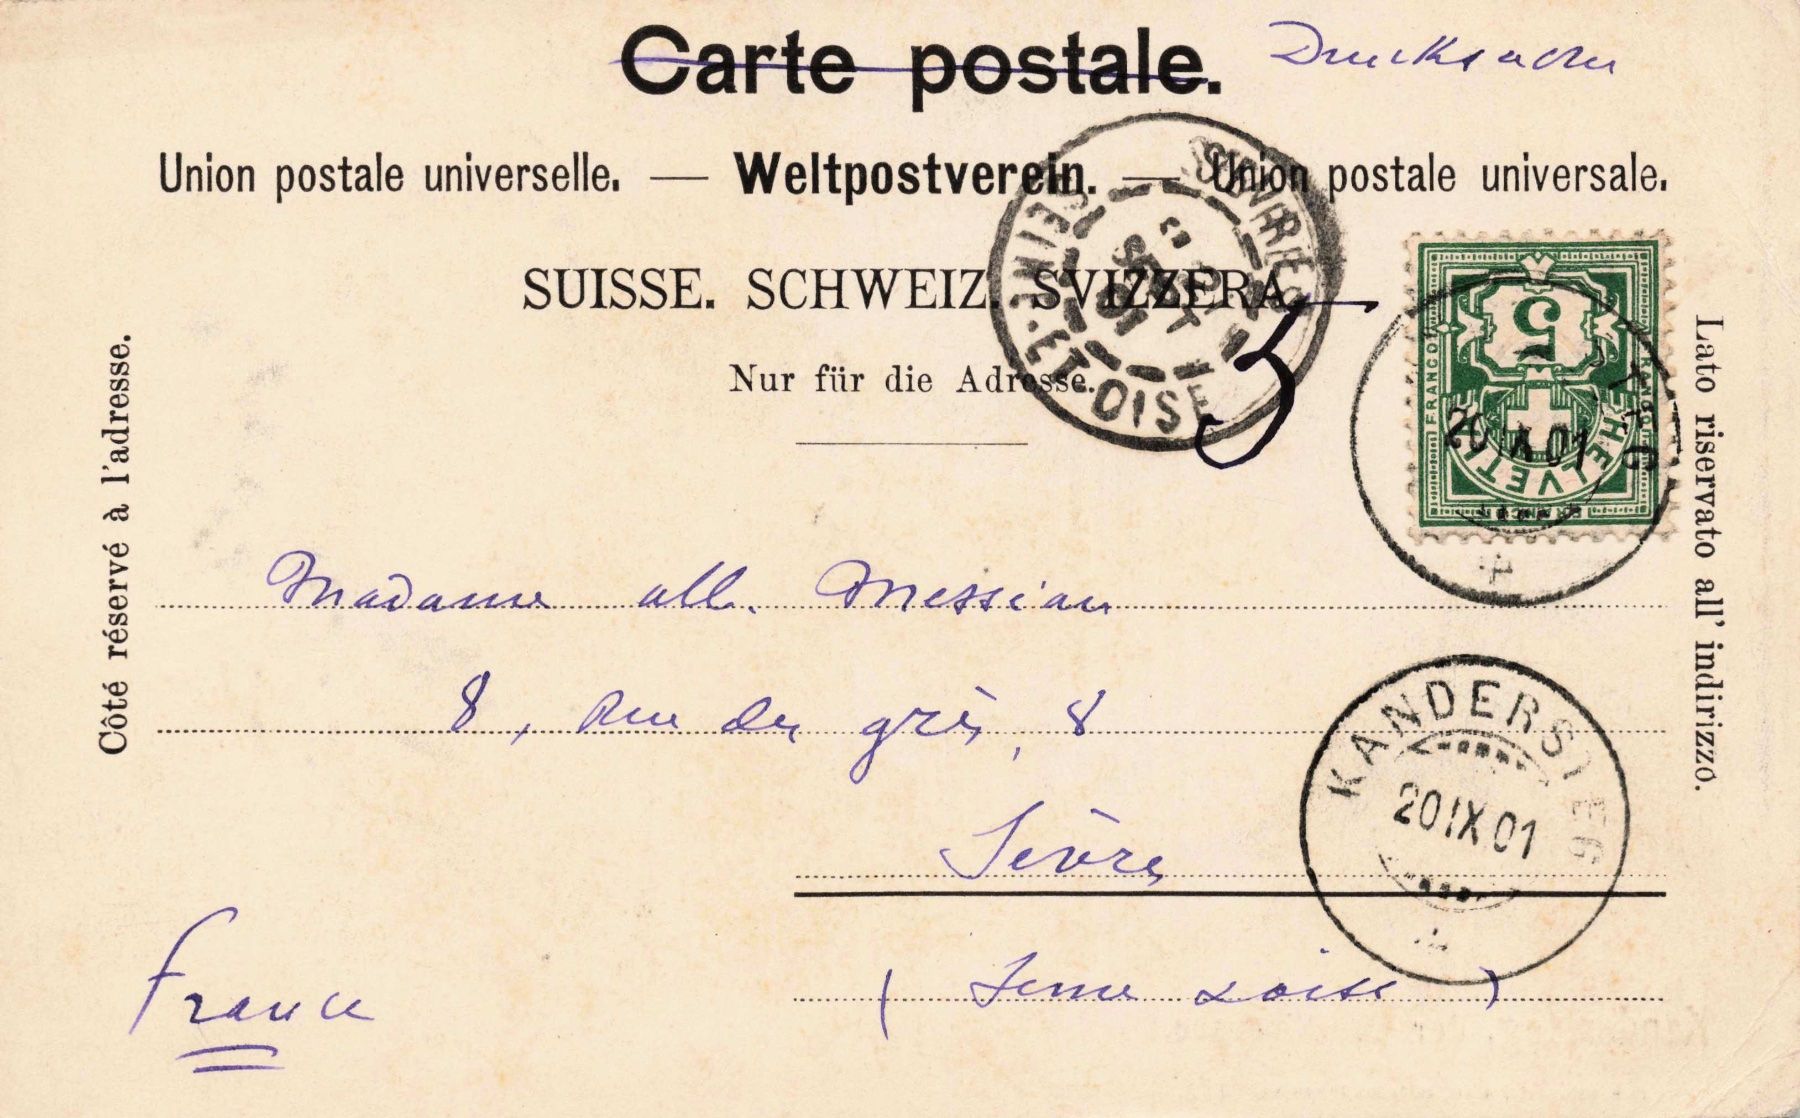 Carte postale. Drucksache
Union postale universelle. — Weltpostverein. — Union postale universale.
SUISSE. SCHWEIZ. SVIZZERA.
Nur für die Adresse.
Côté réservé à l'adresse.
Lato riservato all' indirizzo.
SEINE-ET-OISE
SEPT
01
5
FRANCO
HELVETIA
20 IX 01
3
Madame all. Messian
8, Rue du grès, 8
Sèvres
KANDERSTEG
20 IX 01
France
(Seine & Oise)